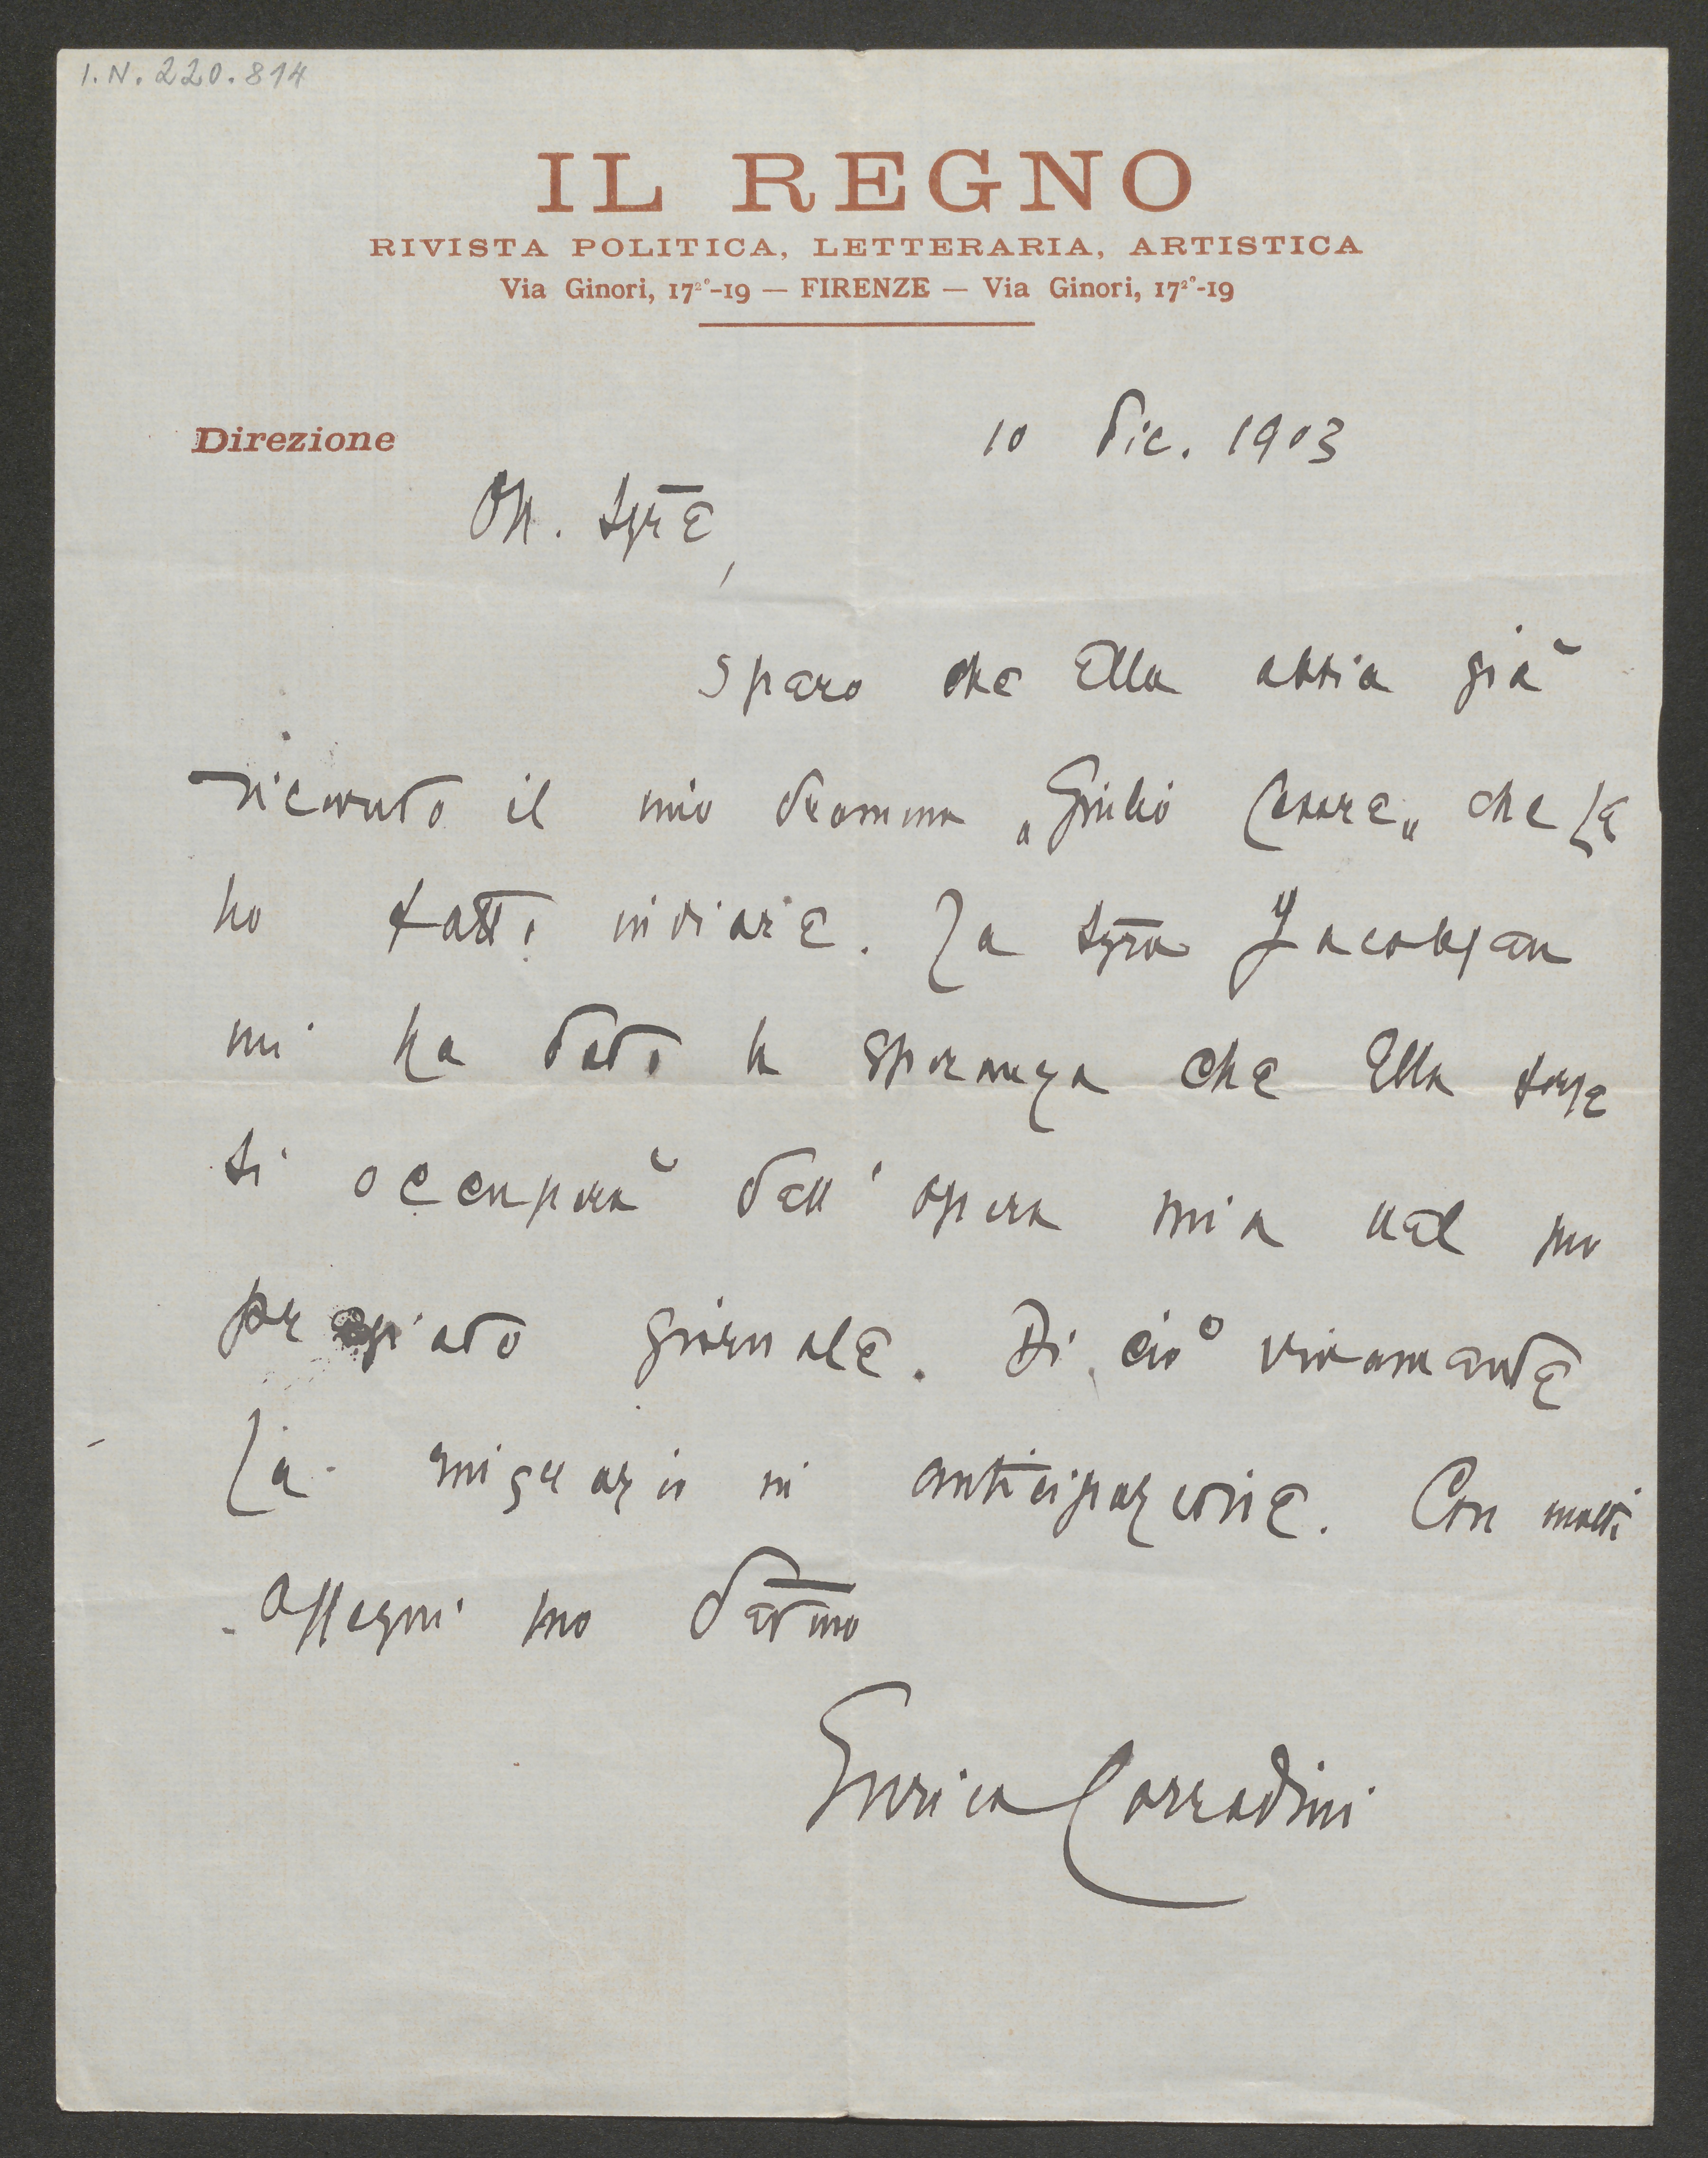 I.N. 220.814
IL REGNO
RIVISTA POLITICA, LETTERARIA, ARTISTICA
Via Ginori, 17²°-19 — FIRENZE — Via Ginori, 17²°-19
Direzione
10 Dic. 1903
On. Sgre,
spero che Ella abbia già
ricevuto il mio dramma „Giulio Cesare„ che Le
ho fatto inviare. La Sgra Jacobsen
mi ha dato la speranza che Ella forse
si occuperà dell'opera mia nel suo
pregiato giornale. Di ciò vivamente
La ringrazio in anticipazione. Con molti
ossequi suo devmo
Enrico Corradini